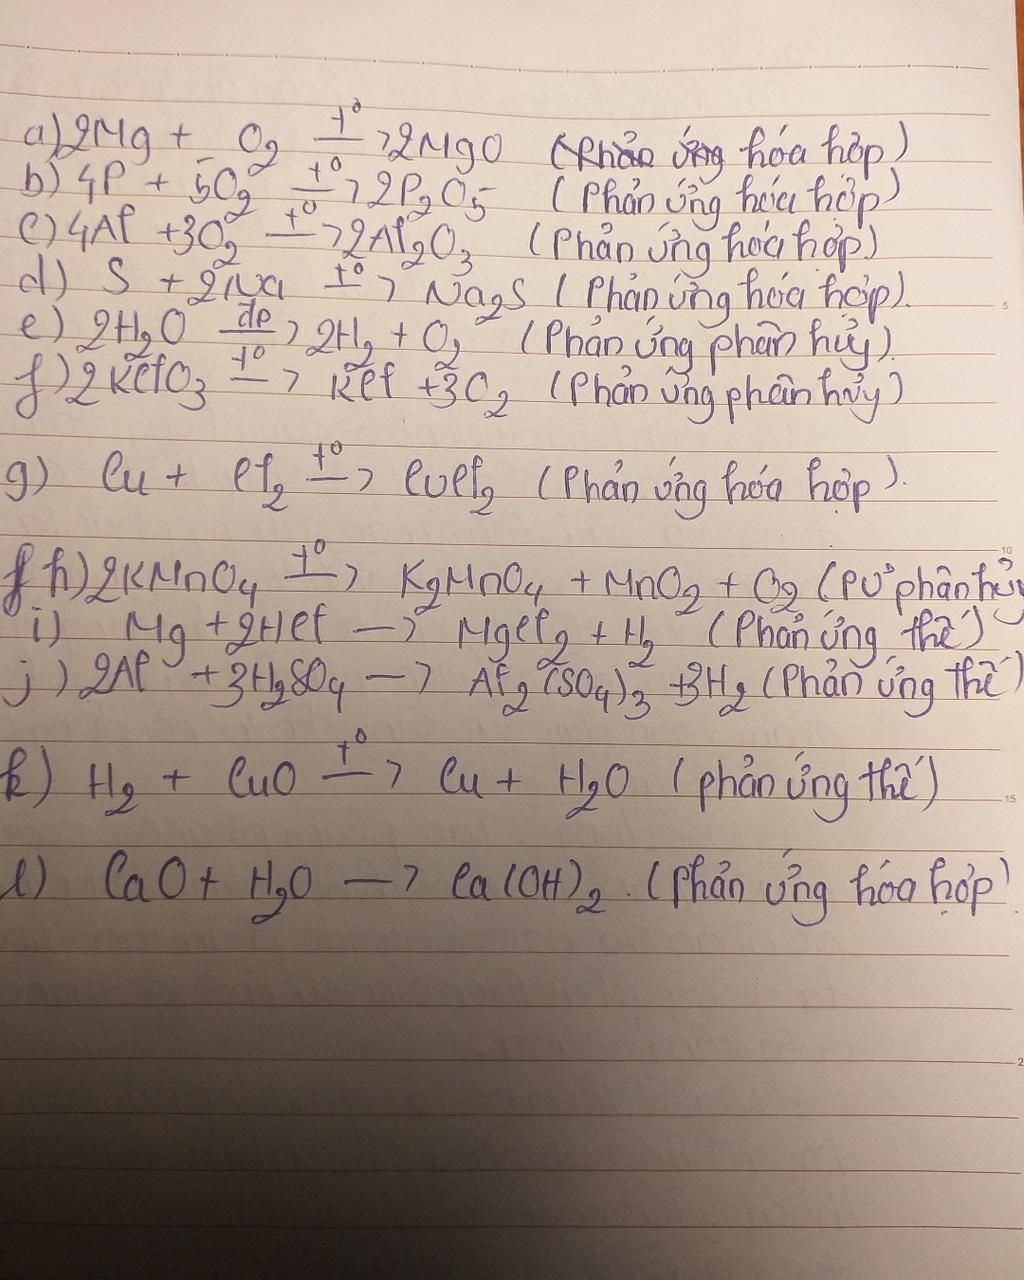 a) 2Mg + O₂ —t⁰→ 2MgO (Phản ứng hóa hợp)
b) 4P + 5O₂ —t⁰→ 2P₂O₅ (Phản ứng hóa hợp)
c) 4Al + 3O₂ —t⁰→ 2Al₂O₃ (Phản ứng hóa hợp)
d) S + 2Na —t⁰→ Na₂S (Phản ứng hóa hợp).
e) 2H₂O —đp→ 2H₂ + O₂ (Phản ứng phân hủy).
f) 2KClO₃ —t⁰→ KCl + 3O₂ (Phản ứng phân hủy)
g) Cu + Cl₂ —t⁰→ CuCl₂ (Phản ứng hóa hợp).
h) 2KMnO₄ —t⁰→ K₂MnO₄ + MnO₂ + O₂ (PƯ phân hủy
i) Mg + 2HCl → MgCl₂ + H₂ (Phản ứng thế)
j) 2Al + 3H₂SO₄ → Al₂(SO₄)₃ + 3H₂ (Phản ứng thế)
k) H₂ + CuO —t⁰→ Cu + H₂O (phản ứng thế)
l) CaO + H₂O → Ca(OH)₂. (Phản ứng hóa hợp)